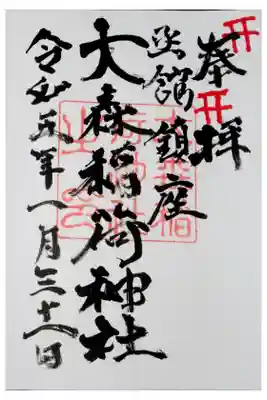 奉拝
函館鎮座
大森稲荷神社
令和五年八月三十一日